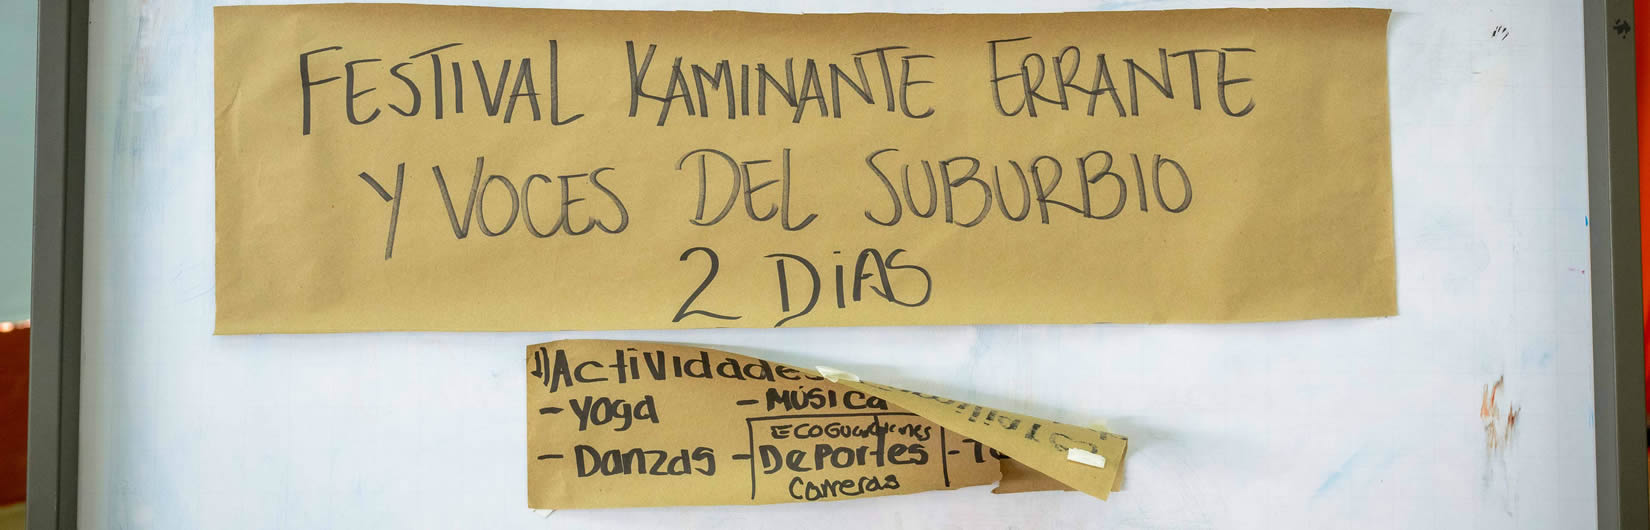 FESTIVAL KAMINANTE ERRANTE
Y VOCES DEL SUBURBIO
2 DiAS
1) Actividades
- Yoga - MÚSICA
ECOGuardianes
- Danzas - DePortes
Carreras